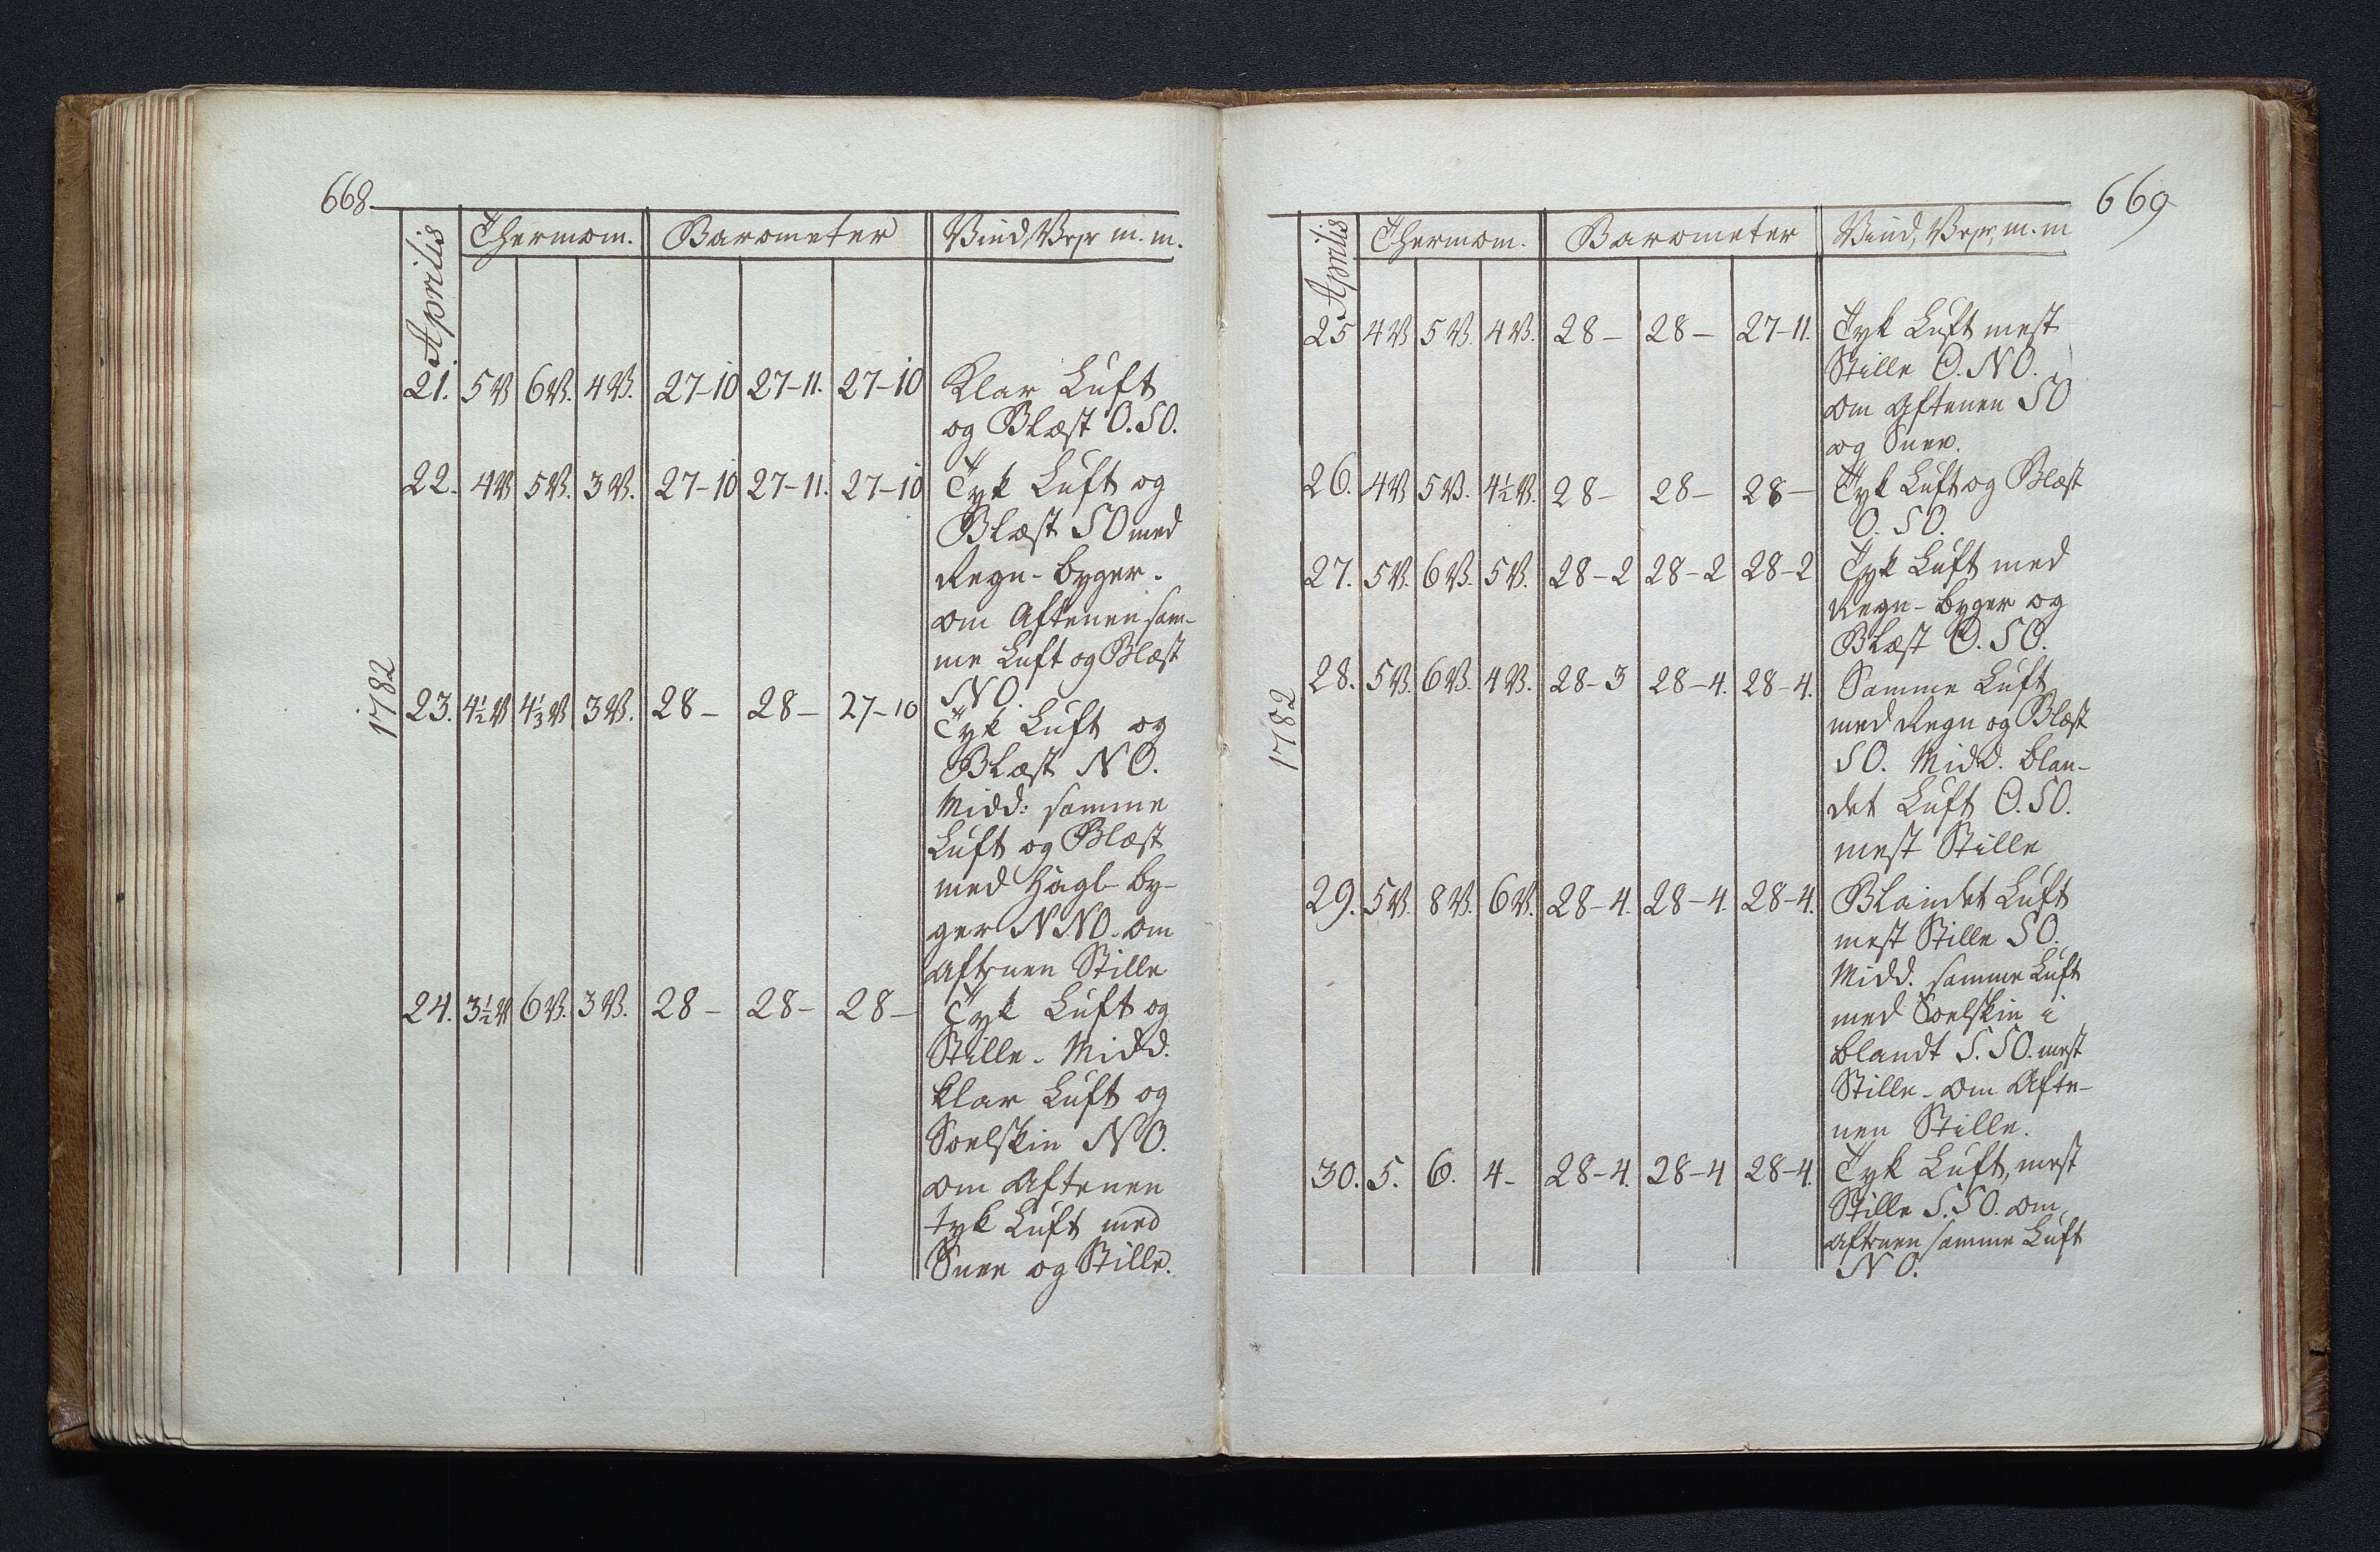 668.
Aprilis Thermom. Barometer Vind, Vejr m. m.
1782
21. 5 V 6 V. 4 V. 27-10 27-11. 27-10 Klar Luft
og Blæst O. SO.
22. 4 V 5 V. 3 V. 27-10 27-11. 27-10 Tyk Luft og
Blæst SO med
Regn-byger.
om Aftenen sam-
me Luft og Blæst
NO.
23. 4½ V 4⅓ V 3 V. 28- 28- 27-10 Tyk Luft og
Blæst NO.
Midd: samme
Luft og Blæst
med Hagl-by-
ger NNO. om
Aftenen Stille
24. 3½ V 6 V. 3 V. 28- 28- 28- Tyk Luft og
Stille. Midd.
klar Luft og
Soelskin NO.
om Aftenen
tyk Luft med
Snee og Stille.
669
Aprilis Thermom. Barometer Vind, Vejr, m. m
1782
25 4 V 5 V. 4 V. 28- 28- 27-11. Tyk Luft mest
Stille O. NO.
om Aftenen SO
og Snee.
26. 4 V 5 V. 4½ V. 28- 28- 28- Tyk Luft og Blæst
O. SO.
27. 5 V. 6 V. 5 V. 28-2 28-2 28-2 Tyk Luft med
Regn-byger og
Blæst O. SO.
28. 5 V. 6 V. 4 V. 28-3 28-4. 28-4. Samme Luft
med Regn og Blæst
SO. Midd. blan-
det Luft O. SO.
mest Stille
29. 5 V. 8 V. 6 V. 28-4. 28-4. 28-4. Blandet Luft
mest Stille SO.
Midd. samme Luft
med Soelskin i
blandt S. SO. mest
Stille - om Afte-
nen Stille.
30. 5. 6. 4- 28-4. 28-4 28-4. Tyk Luft, mest
Stille S. SO. om
Aftenen samme Luft
NO.